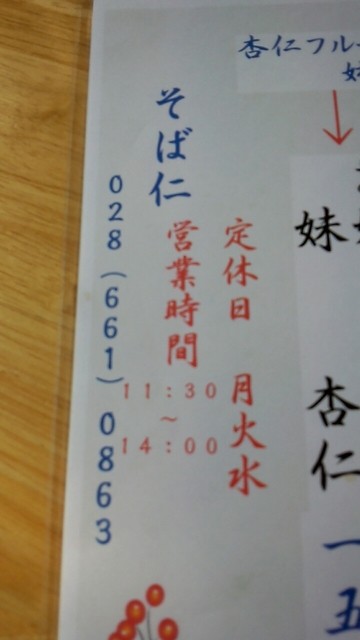 杏仁フル
妹
杏仁
一
五
定休日 月火水
営業時間 11:30~14:00
そば仁
028(661)0863